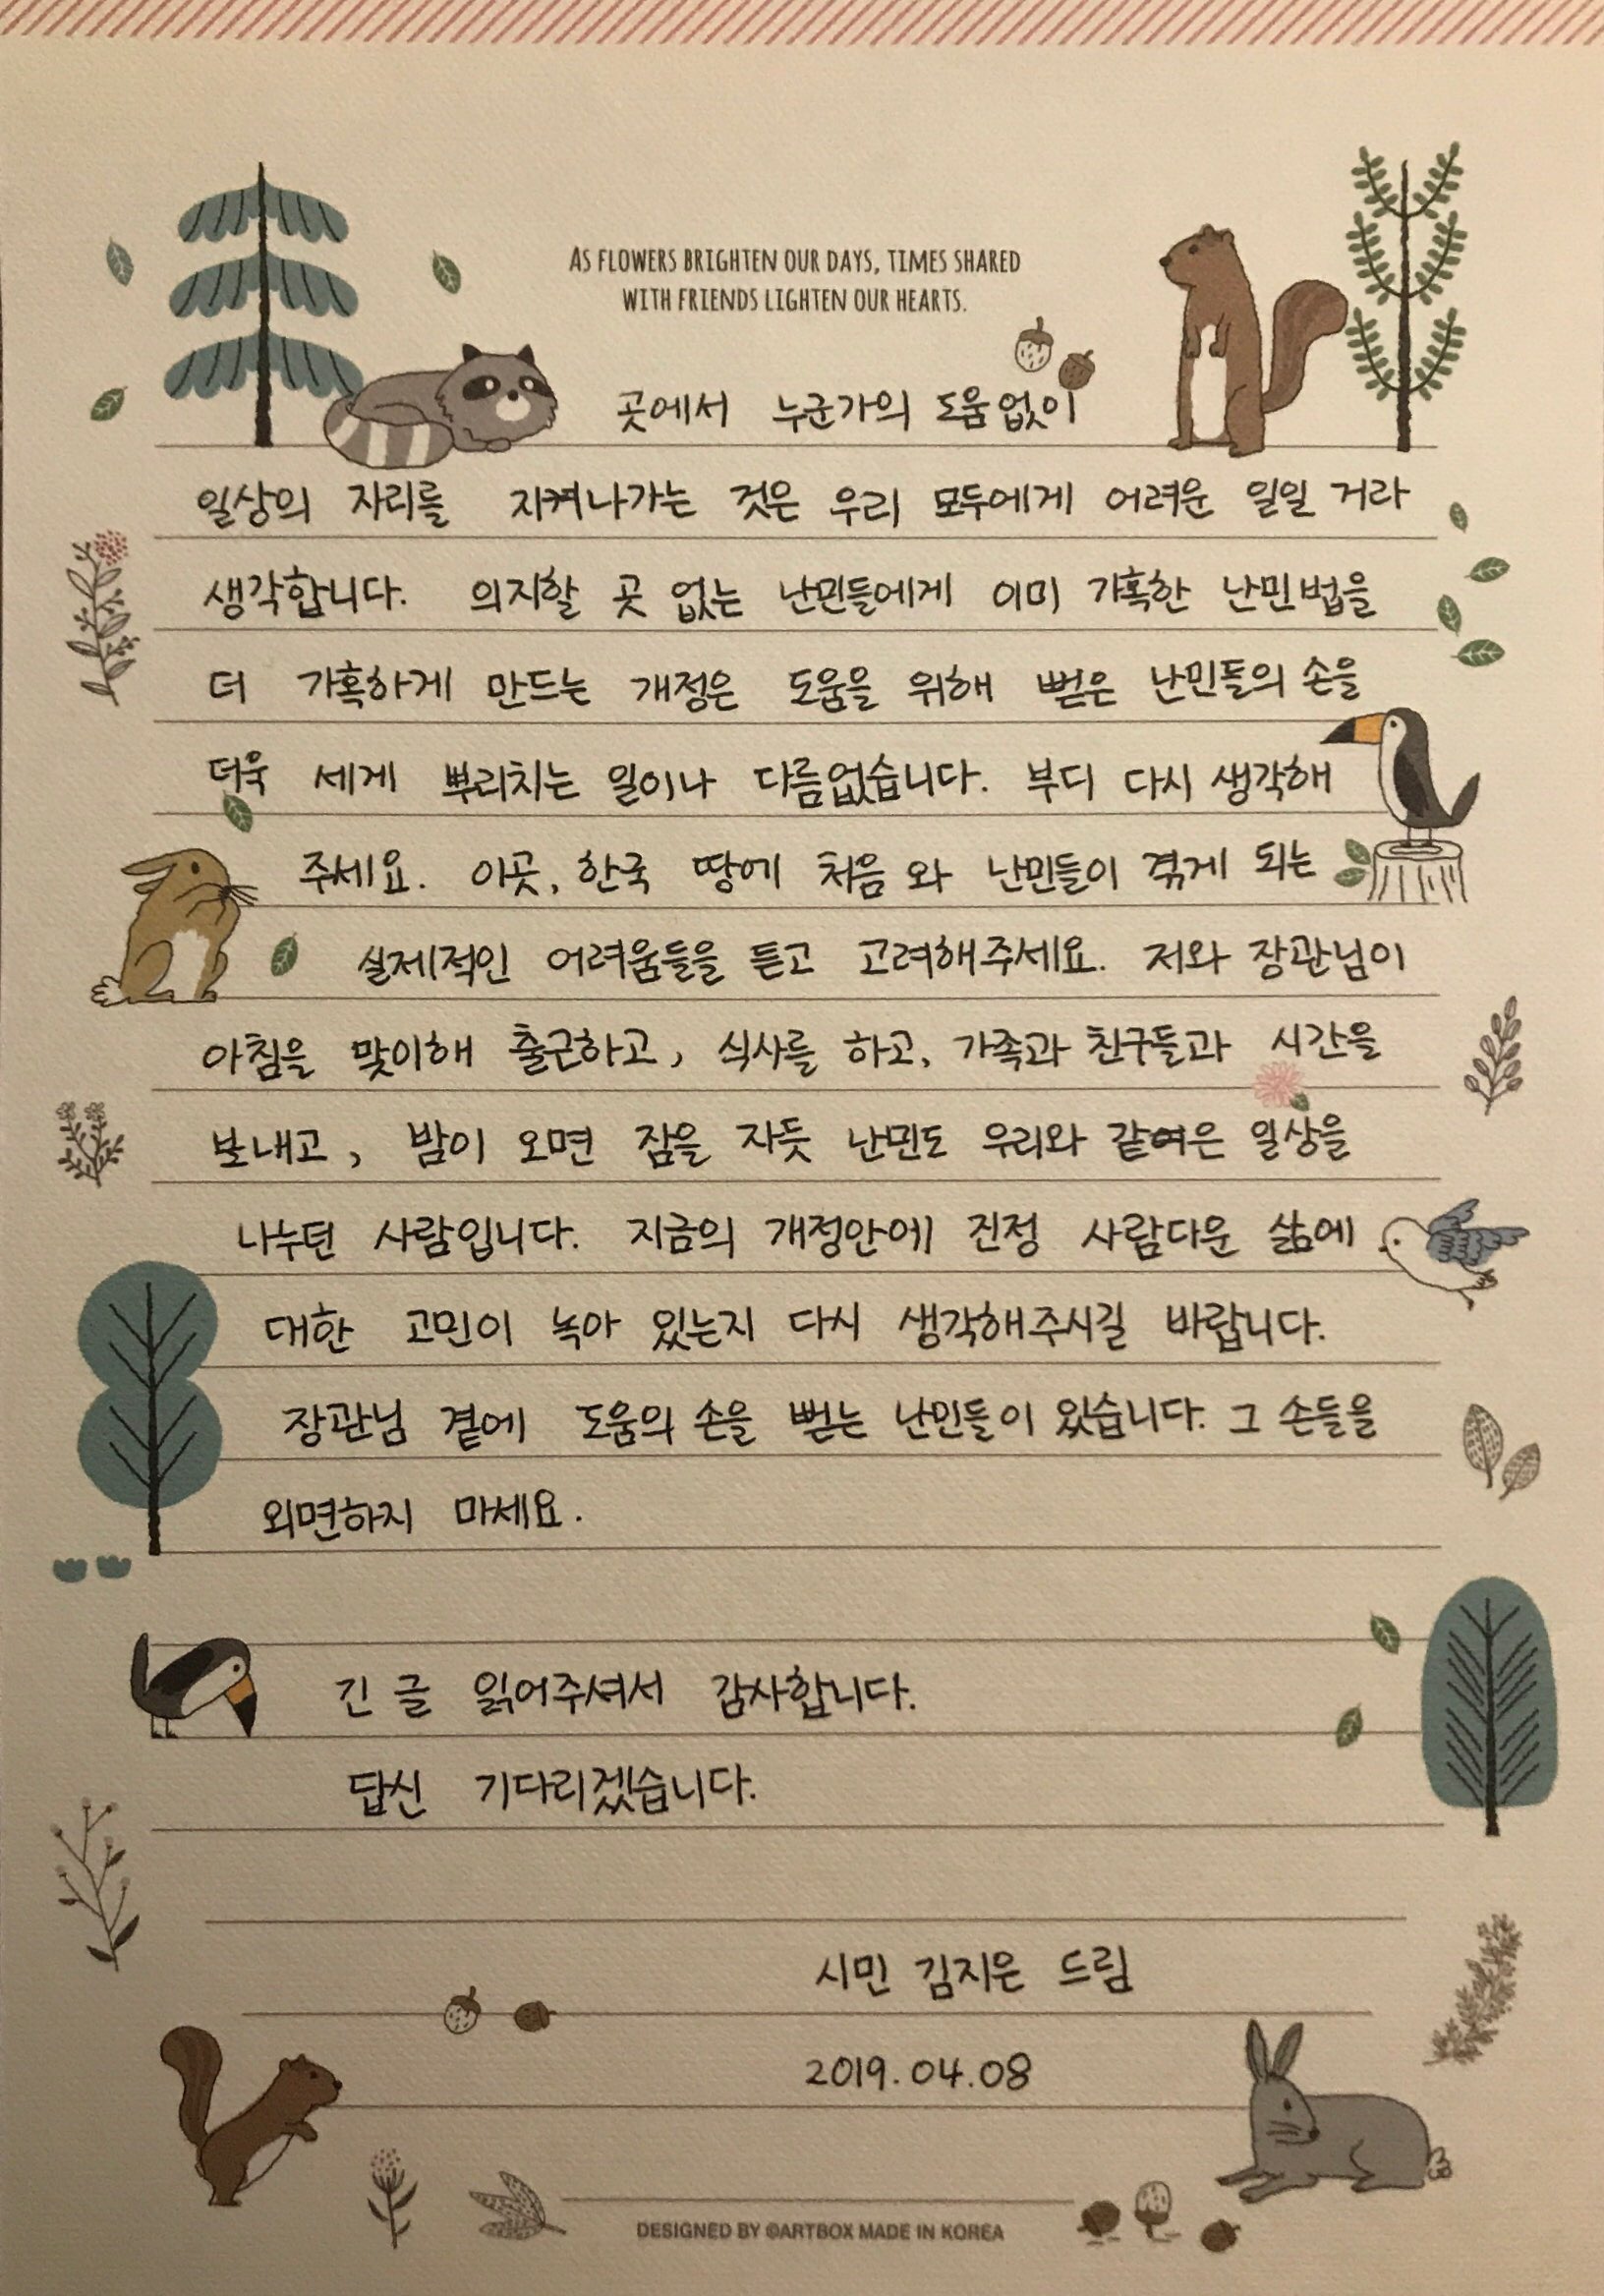 AS FLOWERS BRIGHTEN OUR DAYS, TIMES SHARED
WITH FRIENDS LIGHTEN OUR HEARTS.
곳에서 누군가의 도움없이
일상의 자리를 지켜나가는 것은 우리 모두에게 어려운 일일 거라
생각합니다. 의지할 곳 없는 난민들에게 이미 가혹한 난민법을
더 가혹하게 만드는 개정은 도움을 위해 뻗은 난민들의 손을
더욱 세게 뿌리치는 일이나 다름없습니다. 부디 다시 생각해
주세요. 이곳, 한국 땅에 처음 와 난민들이 겪게 되는
실제적인 어려움들을 듣고 고려해주세요. 저와 장관님이
아침을 맞이해 출근하고, 식사를 하고, 가족과 친구들과 시간을
보내고, 밤이 오면 잠을 자듯 난민도 우리와 같은 일상을
나누던 사람입니다. 지금의 개정안에 진정 사람다운 삶에
대한 고민이 녹아 있는지 다시 생각해주시길 바랍니다.
장관님 곁에 도움의 손을 뻗는 난민들이 있습니다. 그 손들을
외면하지 마세요.
긴 글 읽어주셔서 감사합니다.
답신 기다리겠습니다.
시민 김지은 드림
2019.04.08
DESIGNED BY ©ARTBOX MADE IN KOREA